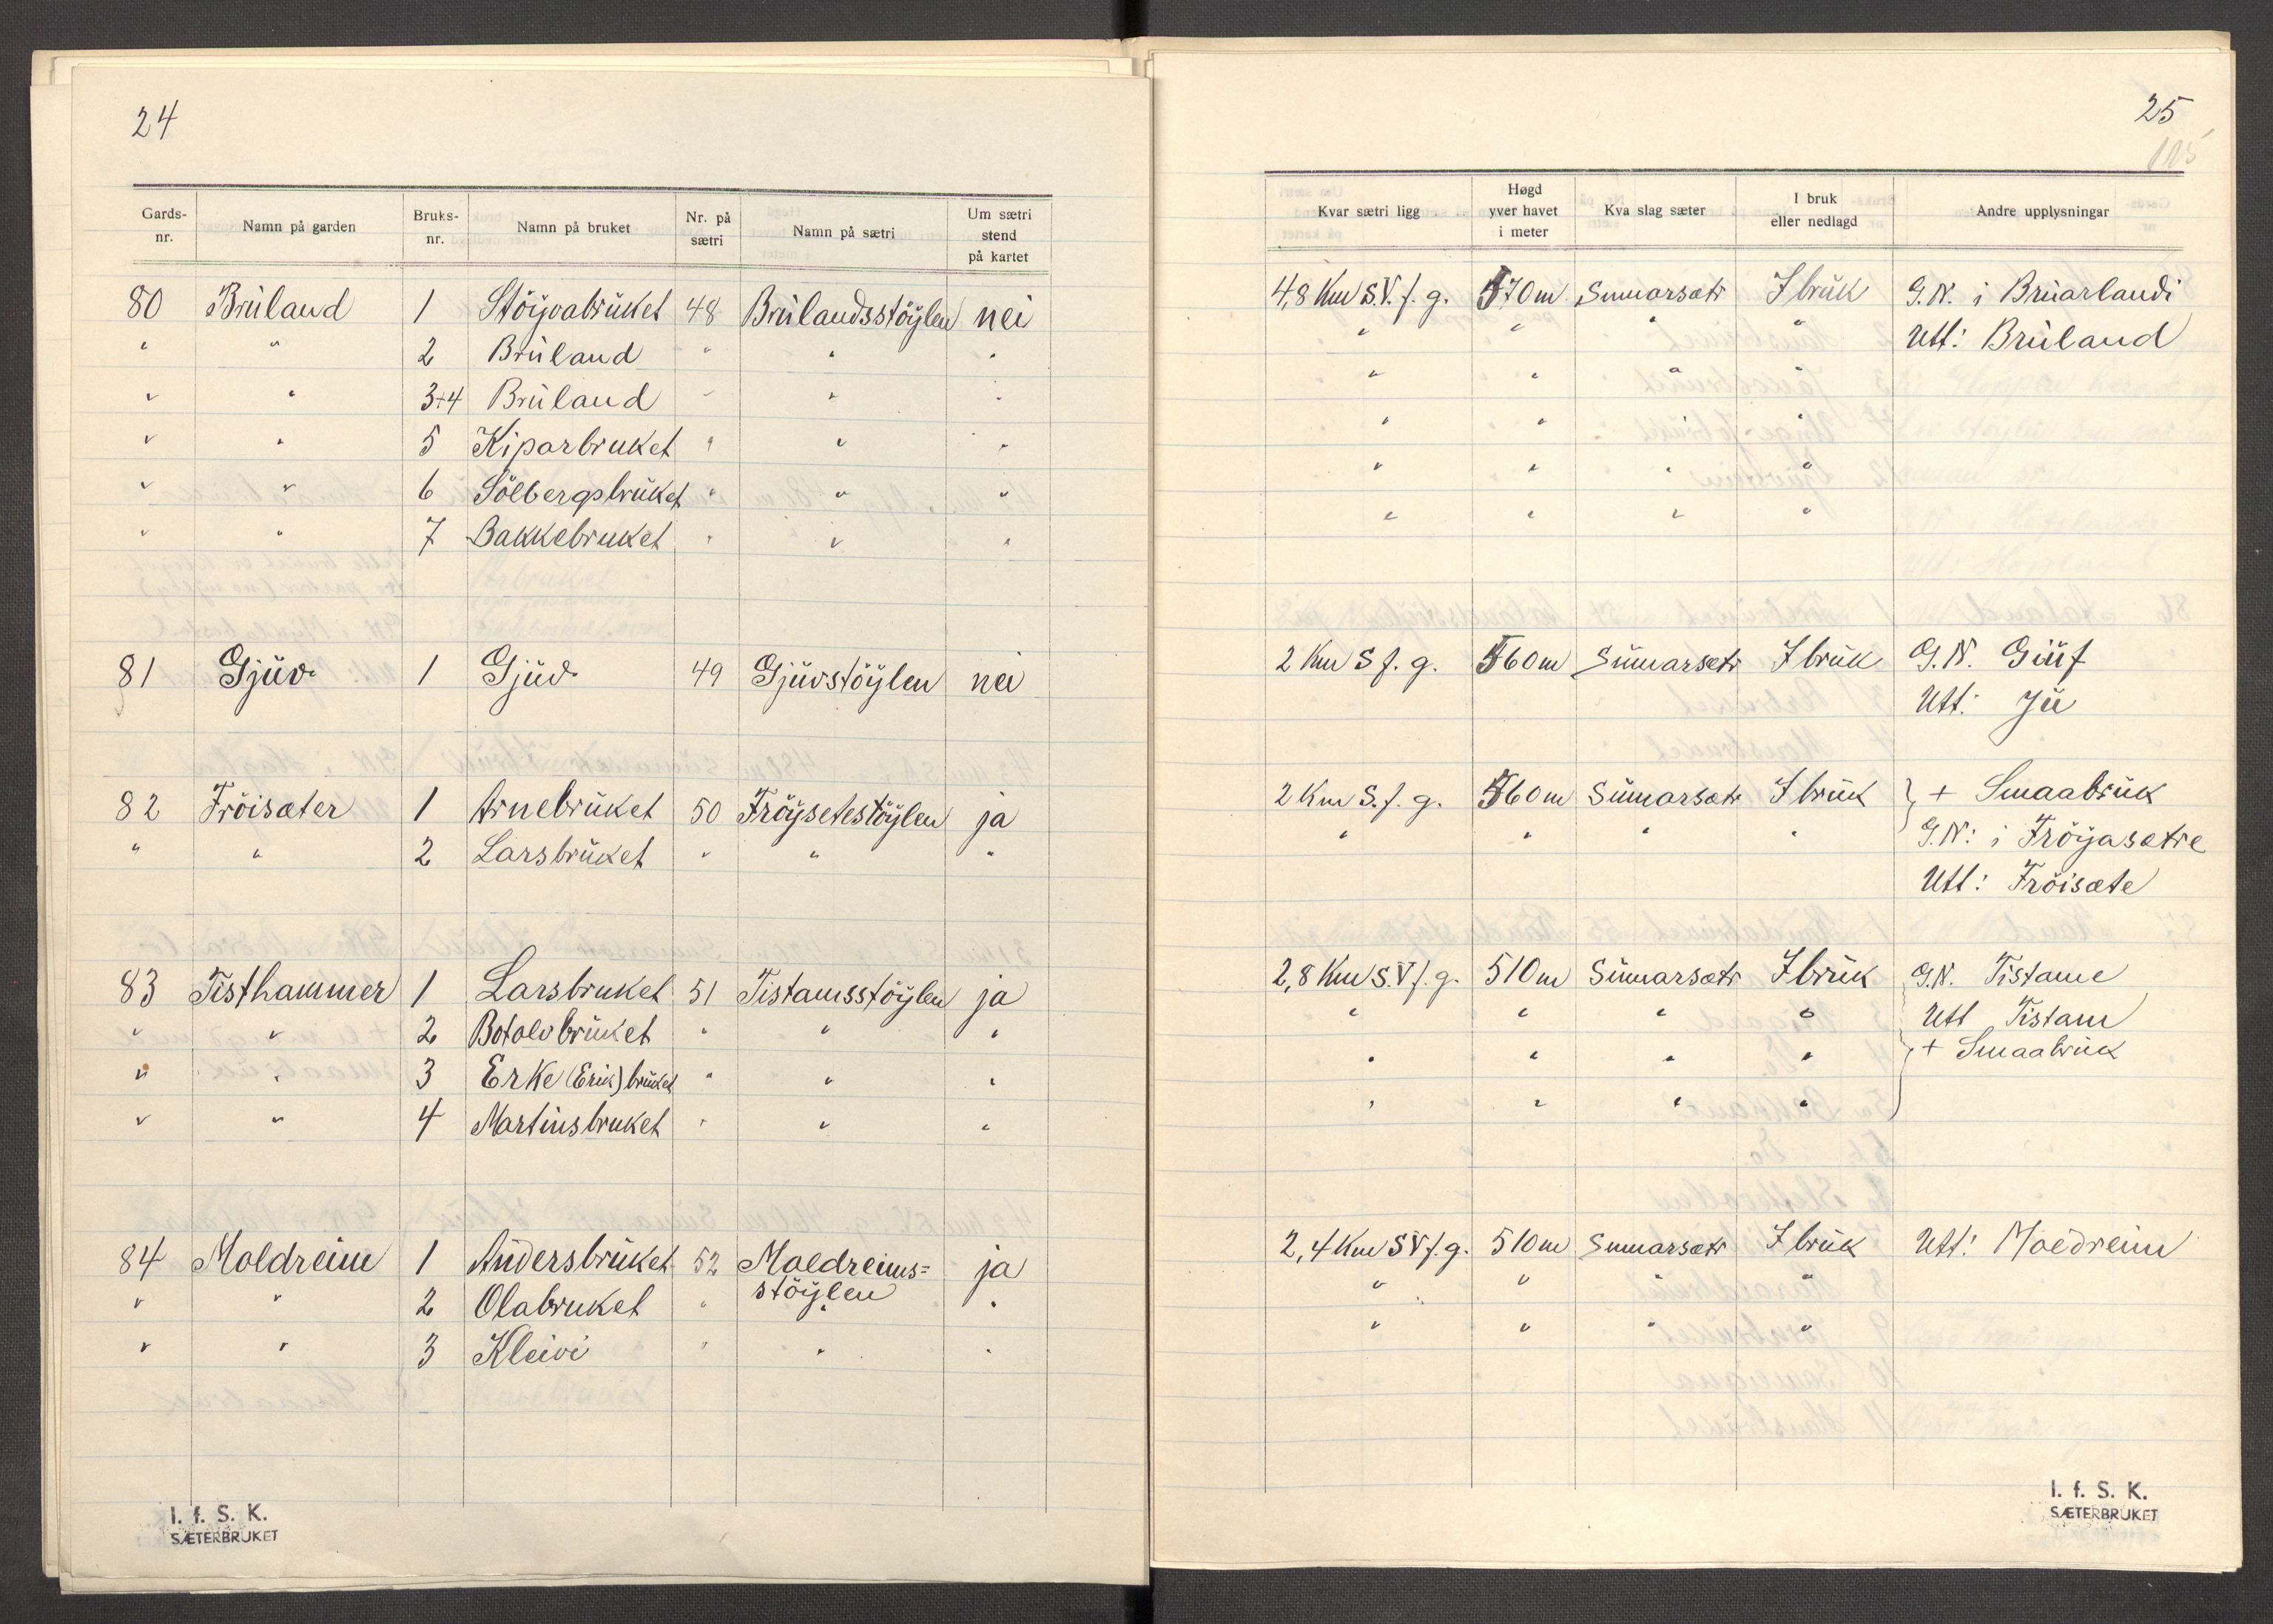 24
Gards-nr. Namn på garden Bruks-nr. Namn på bruket Nr. på sætri Namn på sætri Um sætri stend på kartet
80 Brüland 1 Stöyvabrüket 48 Brülandsstöylen nei
" " 2 Brüland " " "
" " 3+4 Brüland " " "
" " 5 Kiparbruket " " "
" " 6 Sölbergsbrüket " " "
" " 7 Bakkebruket " " "
81 Gjüv 1 Gjüv 49 Gjüvstöylen nei
82 Fröisæter 1 Arnebrüket 50 Fröysetestöylen ja
" " 2 Larsbrüket " " "
83 Tisthammer 1 Larsbruket 51 Tistamsstöylen ja
" " 2 Botolvbrüket " " "
" " 3 Erke (Erik) brüket " " "
" " 4 Martinsbruket " " "
84 Moldreim 1 Andersbrüket 52 Moldreims=
stöylen ja
" " 2 Olabruket " " "
" " 3 Kleivi " " "
I. f. S. K.
SÆTERBRUKET
25
115
Kvar sætri ligg Høgd yver havet i meter Kva slag sæter I bruk eller nedlagd Andre upplysningar
4,8 Km S.V. f. g. 570 m Sumarsætr I brük G.N. i Brüarlandi
" " " " Utt: Brüland
" " " "
" " " "
" " " "
" " " "
2 Km S f. g. 560 m Sümarsetr I brük G.N. Giüf
Utt: Jü
2 Km S. f. g. 560 m Sümarsætr I brük } + Smaabrük
" " " " G.N: i Fröyasætre
Utt: Fröisæte
2,8 Km S.V f. g. 510 m Sümarsætr I brük G.N. Tistame
" " " " Utt Tistam
" " " " + Smaabrük
" " " "
2,4 Km S V f. g. 510 m Sumarsætr I brük Utt: Moldreim
" " " "
" " " "
I. f. S. K.
SÆTERBRUKET